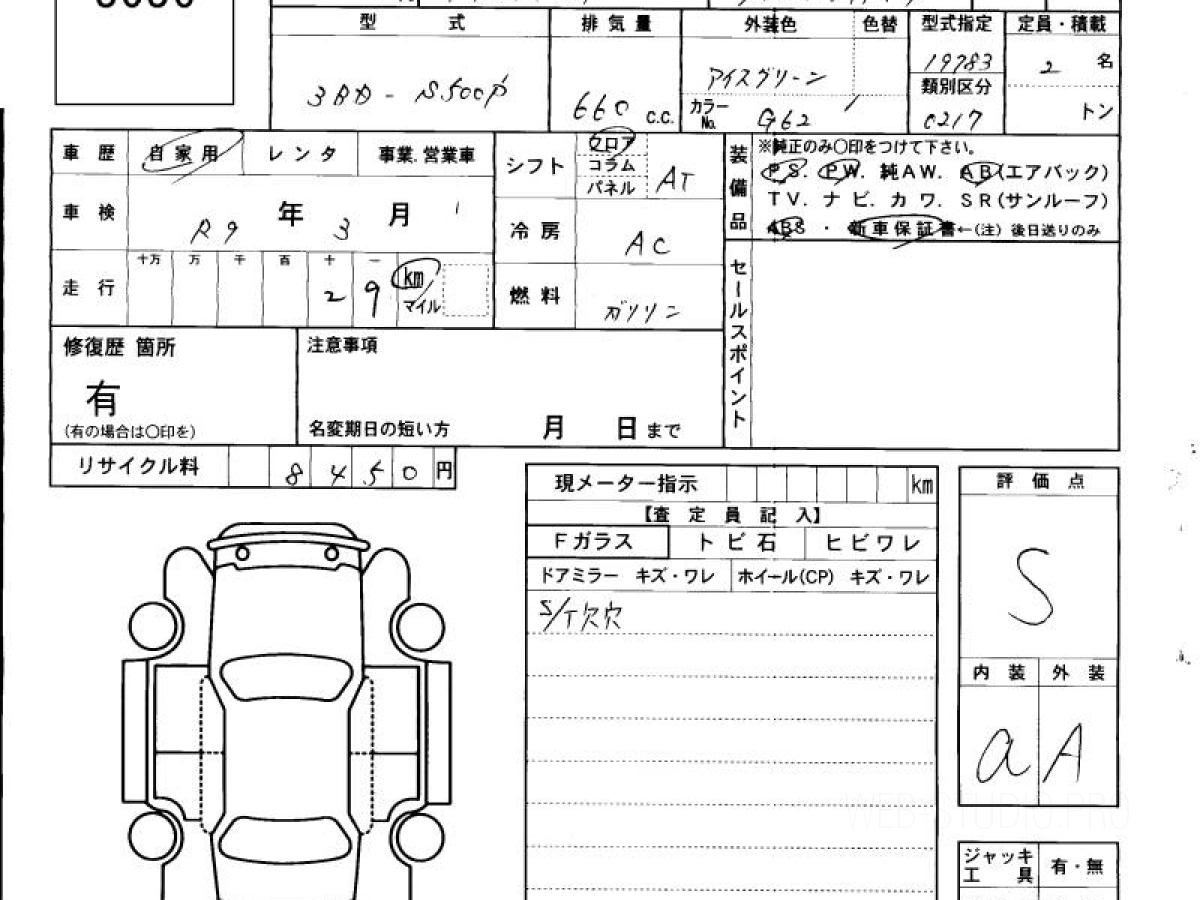 型 式 排気量 外装色 色替 型式指定 定員・積載
3BD - S500P 660 c.c. アイスグリーン 19783 2 名
カラーNo. G62 類別区分 0217 トン
車歴 自家用 レンタ 事業.営業車
シフト フロア コラム パネル AT
車検 R9 年 3 月
冷房 AC
走行 十万 万 千 百 十 一
29 km マイル
燃料 ガソリン
装備品 ※純正のみ〇印をつけて下さい。
PS. PW. 純AW. AB(エアバック)
TV. ナビ. カワ. SR(サンルーフ)
ABS ・ 新車保証書←(注) 後日送りのみ
セールスポイント
修復歴 箇所
有
(有の場合は〇印を)
注意事項
名変期日の短い方 月 日まで
リサイクル料 8450 円
現メーター指示 km
【査定員記入】
Fガラス トビ石 ヒビワレ
ドアミラー キズ・ワレ ホイール(CP) キズ・ワレ
S/T欠穴
評価点
S
内装 外装
a A
ジャッキ
工具 有・無
WEB-STUDIO.PRO